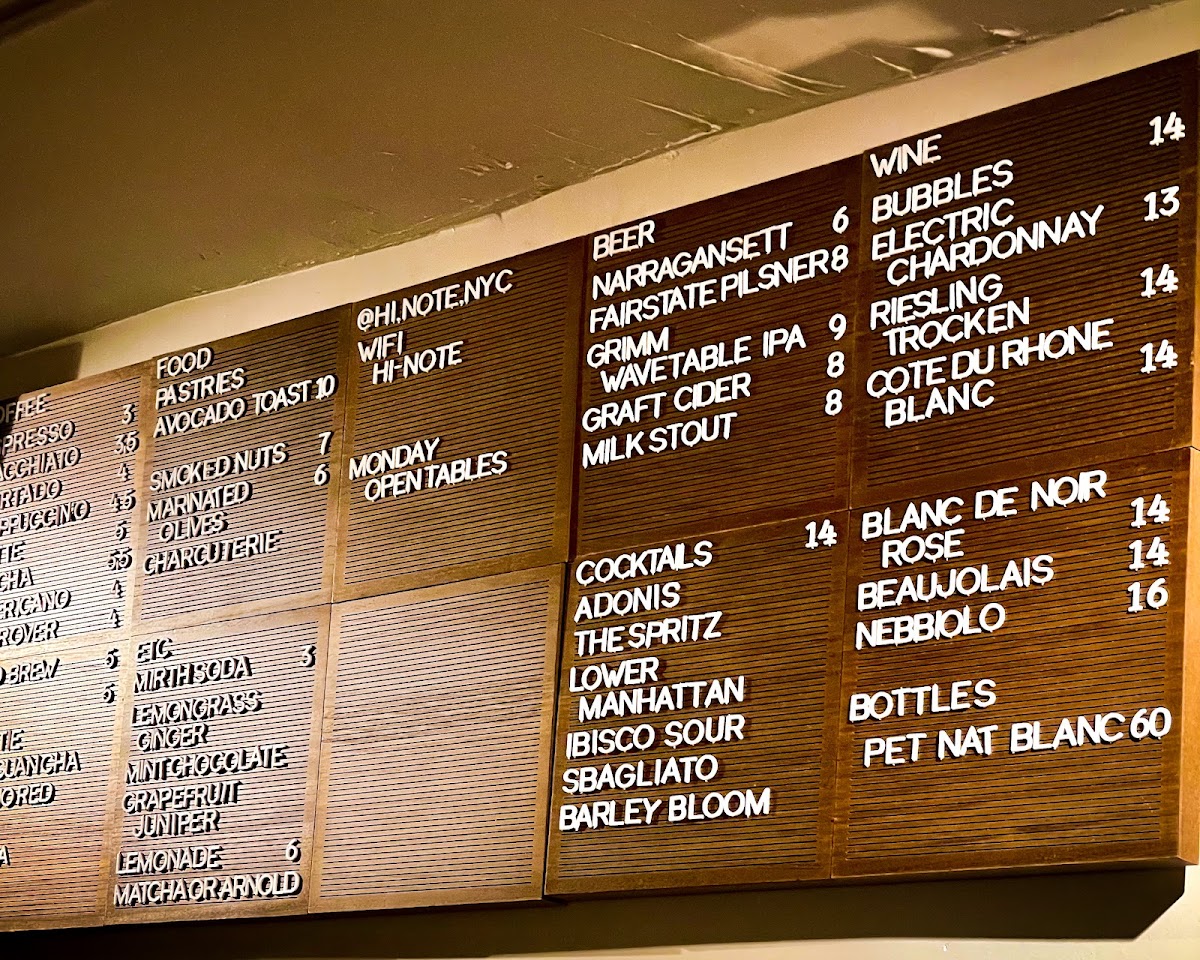 3
3.5
4
4.5
5
5.5
4
4
BREW 5
5
FOOD
PASTRIES
AVOCADO TOAST 10
SMOKED NUTS 7
MARINATED 6
OLIVES
CHARCUTERIE
ETC
MIRTH SODA 3
LEMONGRASS
GINGER
MINT CHOCOLATE
GRAPEFRUIT
JUNIPER
LEMONADE 6
MATCHA OR ARNOLD
@HI.NOTE.NYC
WIFI
HI-NOTE
MONDAY
OPEN TABLES
BEER
NARRAGANSETT 6
FAIRSTATE PILSNER 8
GRIMM
WAVETABLE IPA 9
GRAFT CIDER 8
MILK STOUT 8
COCKTAILS 14
ADONIS
THE SPRITZ
LOWER
MANHATTAN
IBISCO SOUR
SBAGLIATO
BARLEY BLOOM
WINE
BUBBLES 14
ELECTRIC
CHARDONNAY 13
RIESLING
TROCKEN 14
COTE DU RHONE
BLANC 14
BLANC DE NOIR
ROSE 14
BEAUJOLAIS 14
NEBBIOLO 16
BOTTLES
PET NAT BLANC 60